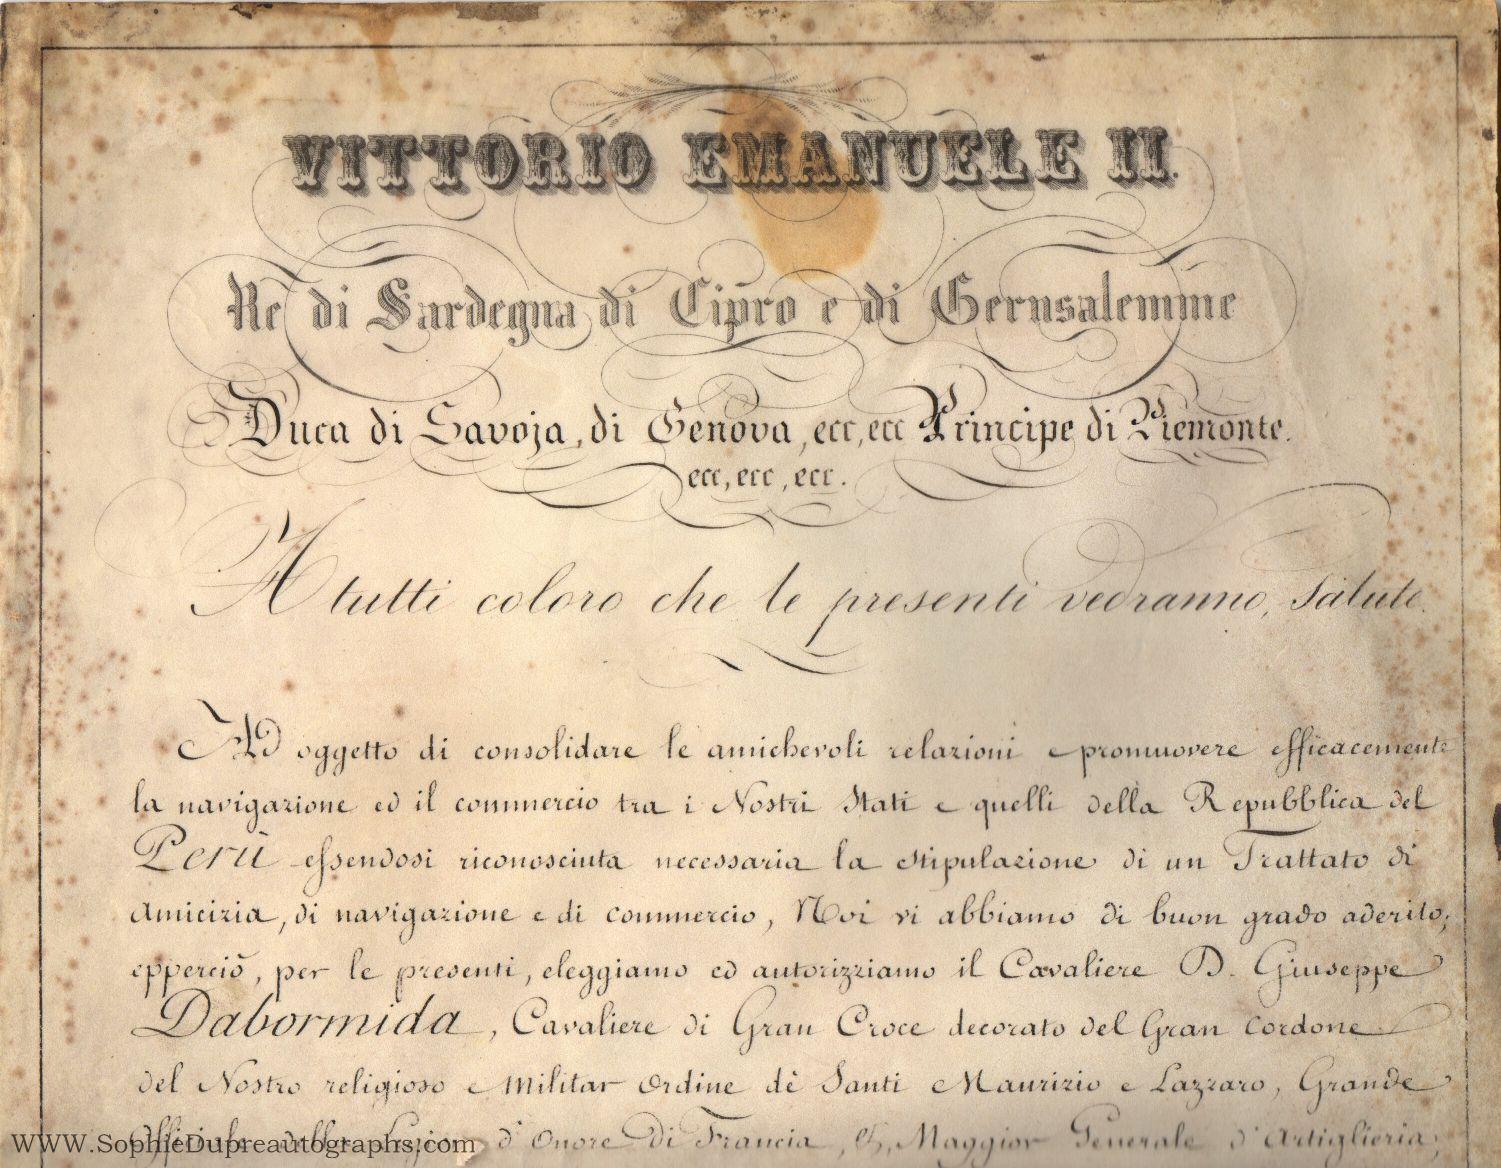 VITTORIO EMANUELE II.
Re di Sardegna di Cipro e di Gerusalemme
Duca di Savoja, di Genova, ecc, ecc Principe di Piemonte.
ecc, ecc, ecc.
A tutti coloro che le presenti vedranno, Salute.
Ad oggetto di consolidare le amichevoli relazioni e promuovere efficacemente
la navigazione ed il commercio tra i Nostri Stati e quelli della Repubblica del
Perù essendosi riconosciuta necessaria la stipulazione di un Trattato di
amicizia, di navigazione e di commercio, Noi vi abbiamo di buon grado aderito,
epperciò, per le presenti, eleggiamo ed autorizziamo il Cavaliere D. Giuseppe
Dabormida, Cavaliere di Gran Croce decorato del Gran Cordone
del Nostro religioso e militar ordine dè Santi Maurizio e Lazzaro, Grande
Offiziale della Legion d'Onore di Francia, Maggior Generale d'Artiglieria,
WWW.SophieDupreautographs.com